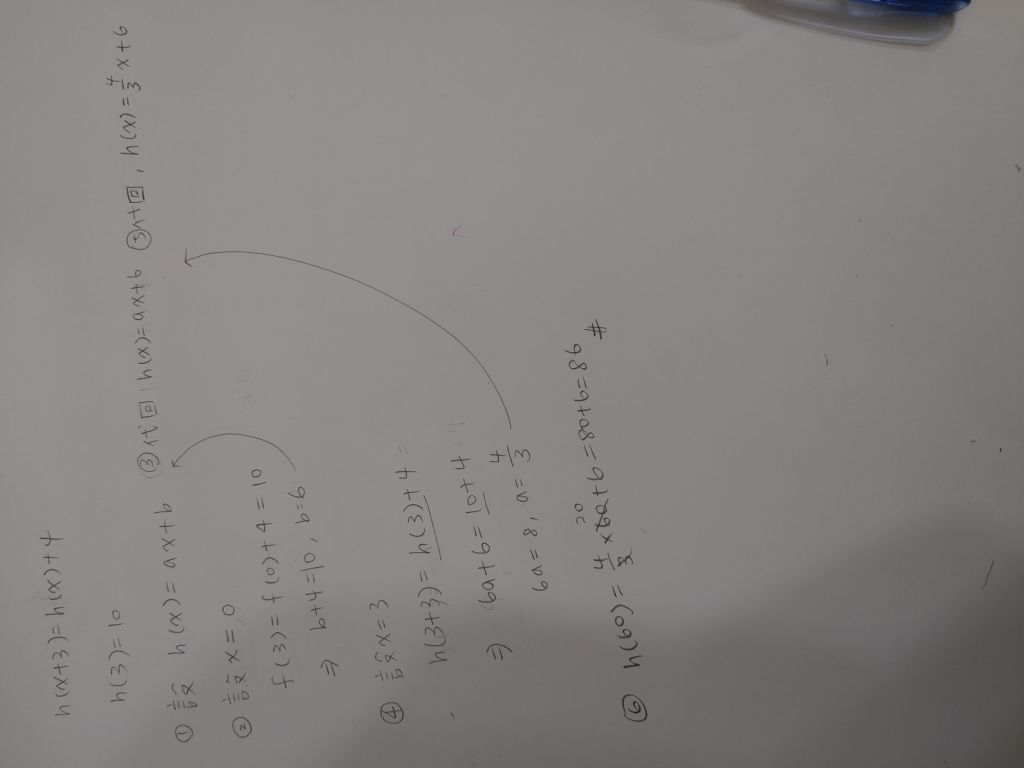 h(x+3)=h(x)+4
h(3)=10
① 設 h(x)=ax+b ③代回 h(x)=ax+6 ⑤代回, h(x)=4/3x+6
② 設 x=0
f(3)=f(0)+4=10
⇒ b+4=10, b=6
④ 設 x=3
h(3+3)=h(3)+4=
⇒ 6a+6=10+4
6a=8, a=4/3
⑥ h(60)=4/3×60+6=80+6=86 #
20